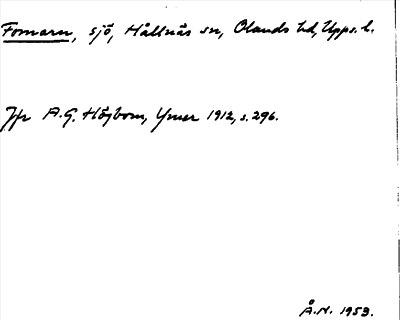 Fomarn, sjö, Hållnäs sn, Olands hd, Upps. l.
Jfr A.G. Högbom, Ymer 1912, s. 296.
Å.N. 1953.